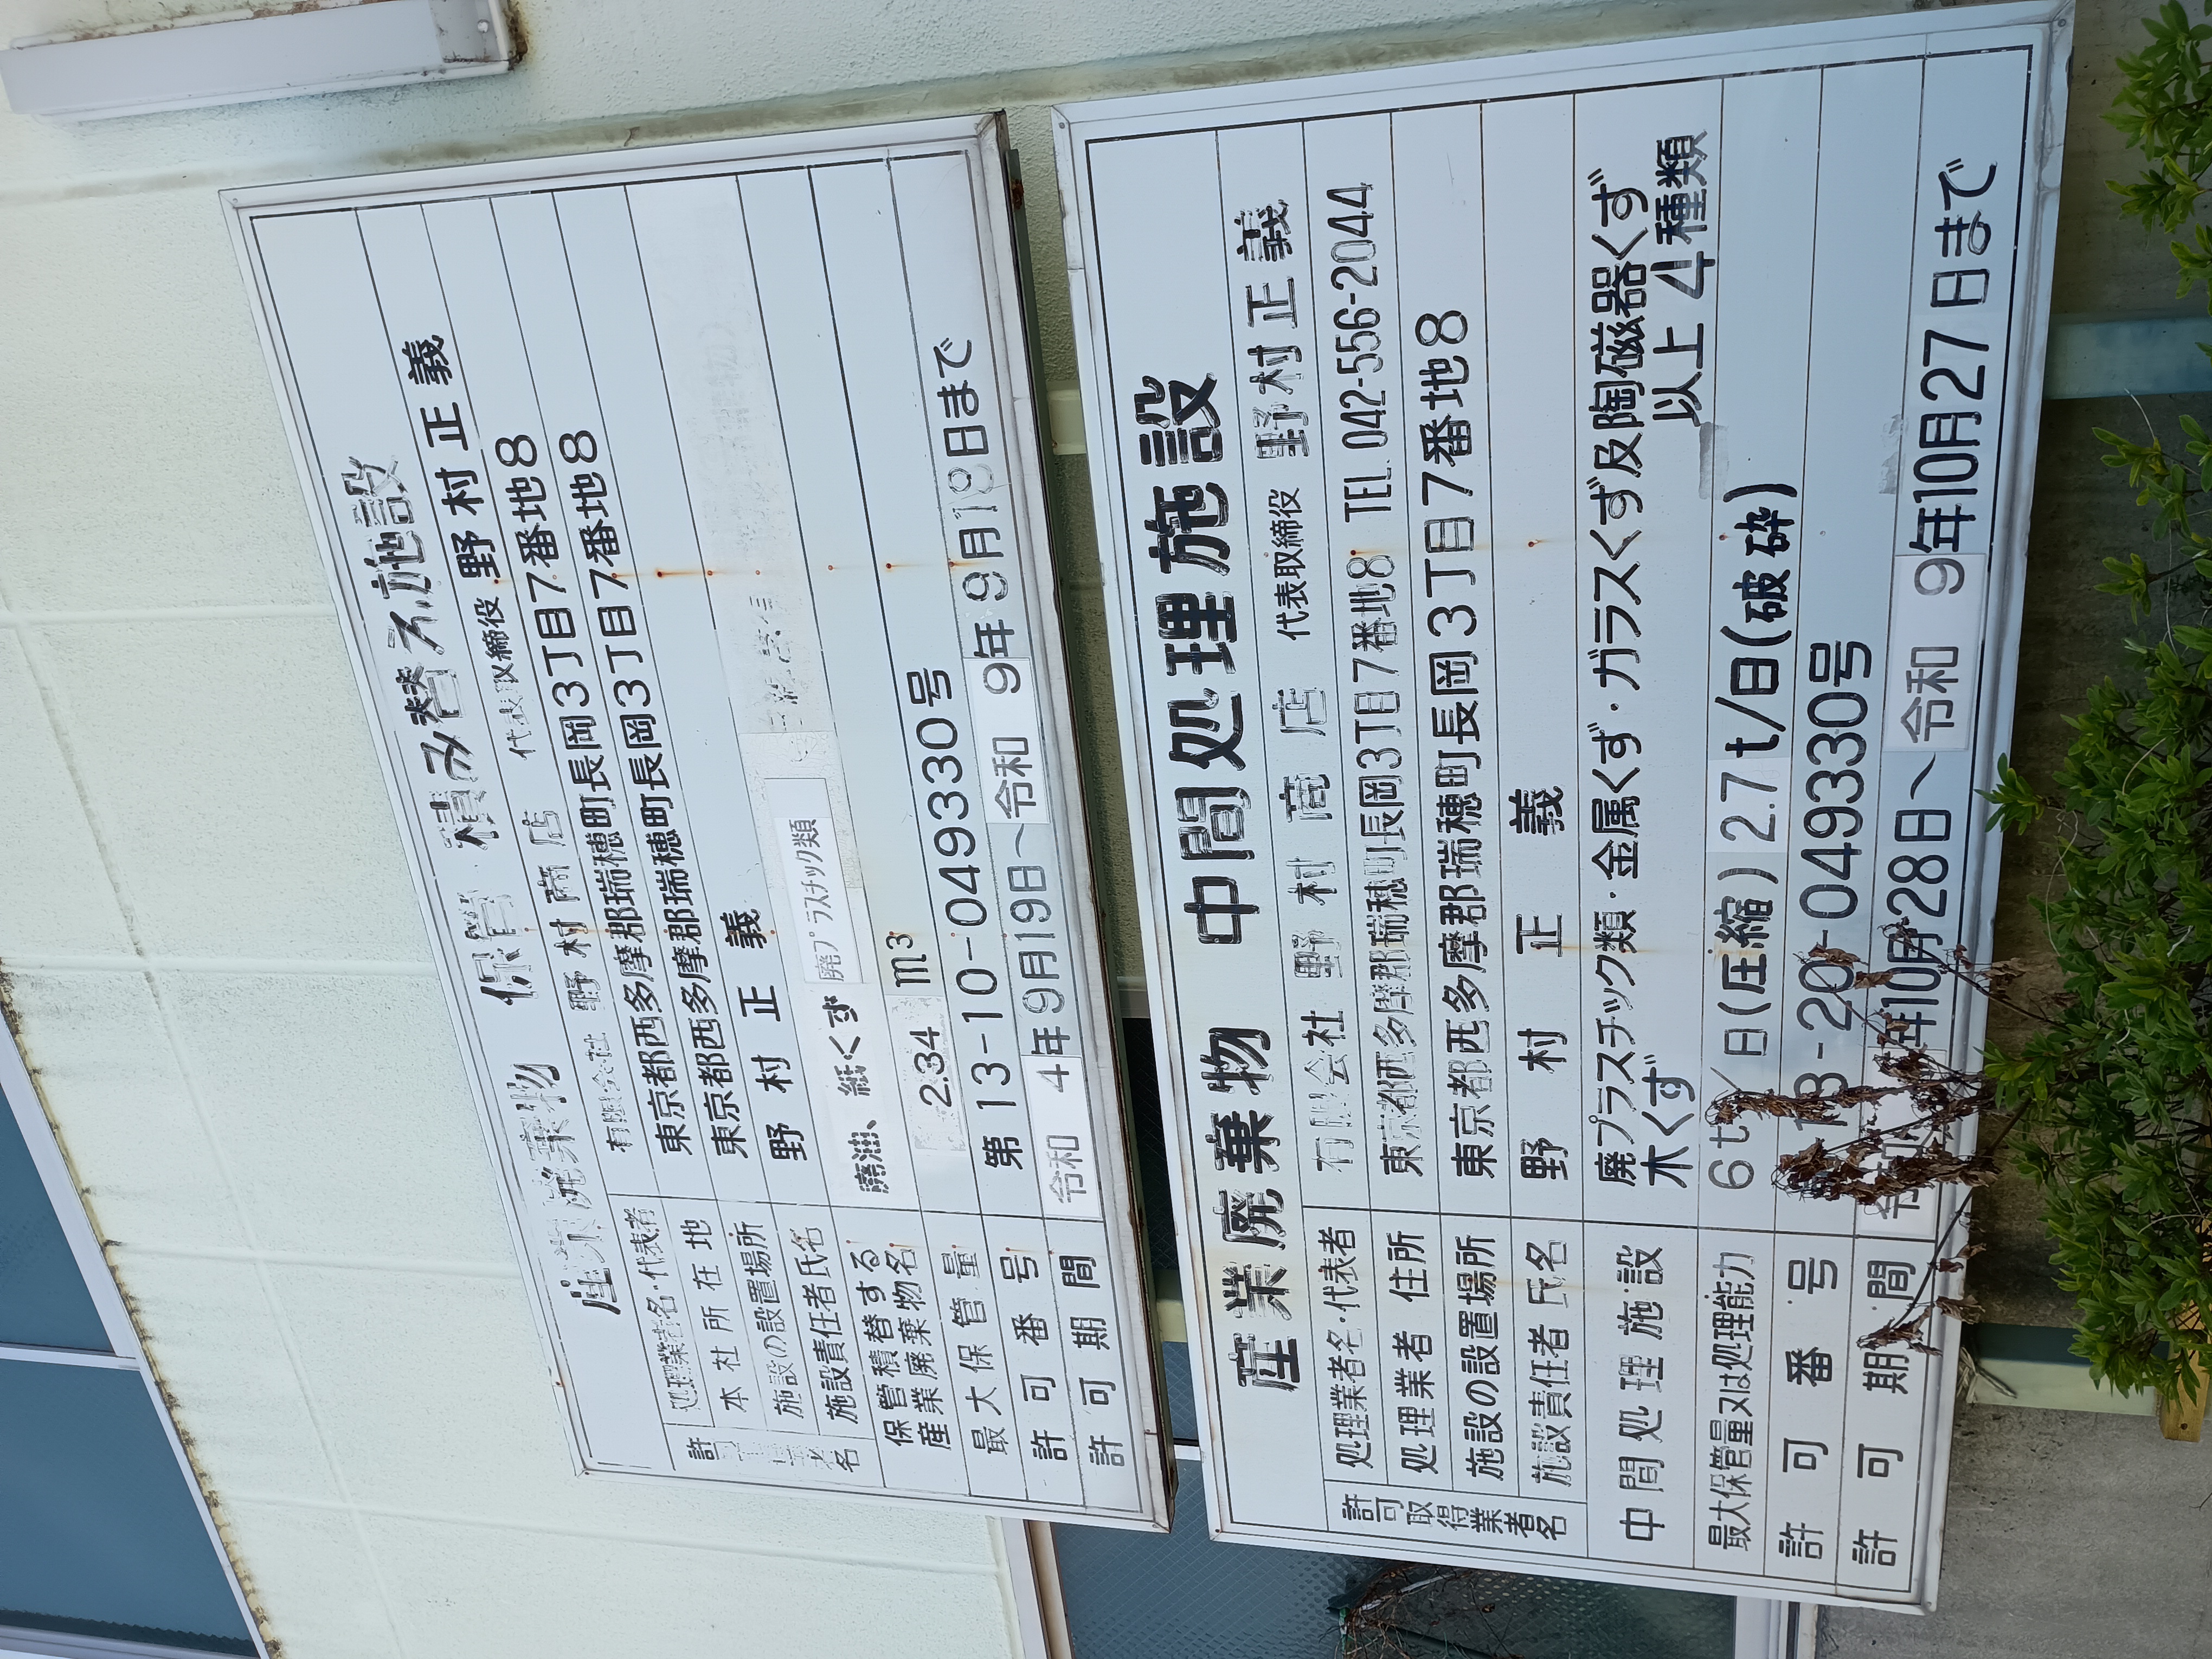 産業廃棄物 保管 積み替え施設
処理業者名・代表者 有限会社 野村商店 代表取締役 野村正義
本社所在地 東京都西多摩郡瑞穂町長岡3丁目7番地8
施設の設置場所 東京都西多摩郡瑞穂町長岡3丁目7番地8
施設責任者氏名 野村正義
保管積替する
産業廃棄物名 廃油、紙くず 廃プラスチック類
最大保管量 2.34 m3
許可番号 第13-10-049330号
許可期間 令和 4年9月19日〜令和 9年9月18日まで
産業廃棄物 中間処理施設
許可取得業者名
処理業者名・代表者 有限会社 野村商店 代表取締役 野村正義
処理業者 住所 東京都西多摩郡瑞穂町長岡3丁目7番地8 TEL.042-556-2044
施設の設置場所 東京都西多摩郡瑞穂町長岡3丁目7番地8
施設責任者 氏名 野村正義
中間処理施設 廃プラスチック類・金属くず・ガラスくず及陶磁器くず
木くず 以上4種類
最大保管量又は処理能力 6t/日(圧縮) 2.7t/日(破砕)
許可番号 13-20-049330号
許可期間 年10月28日〜令和 9年10月27日まで